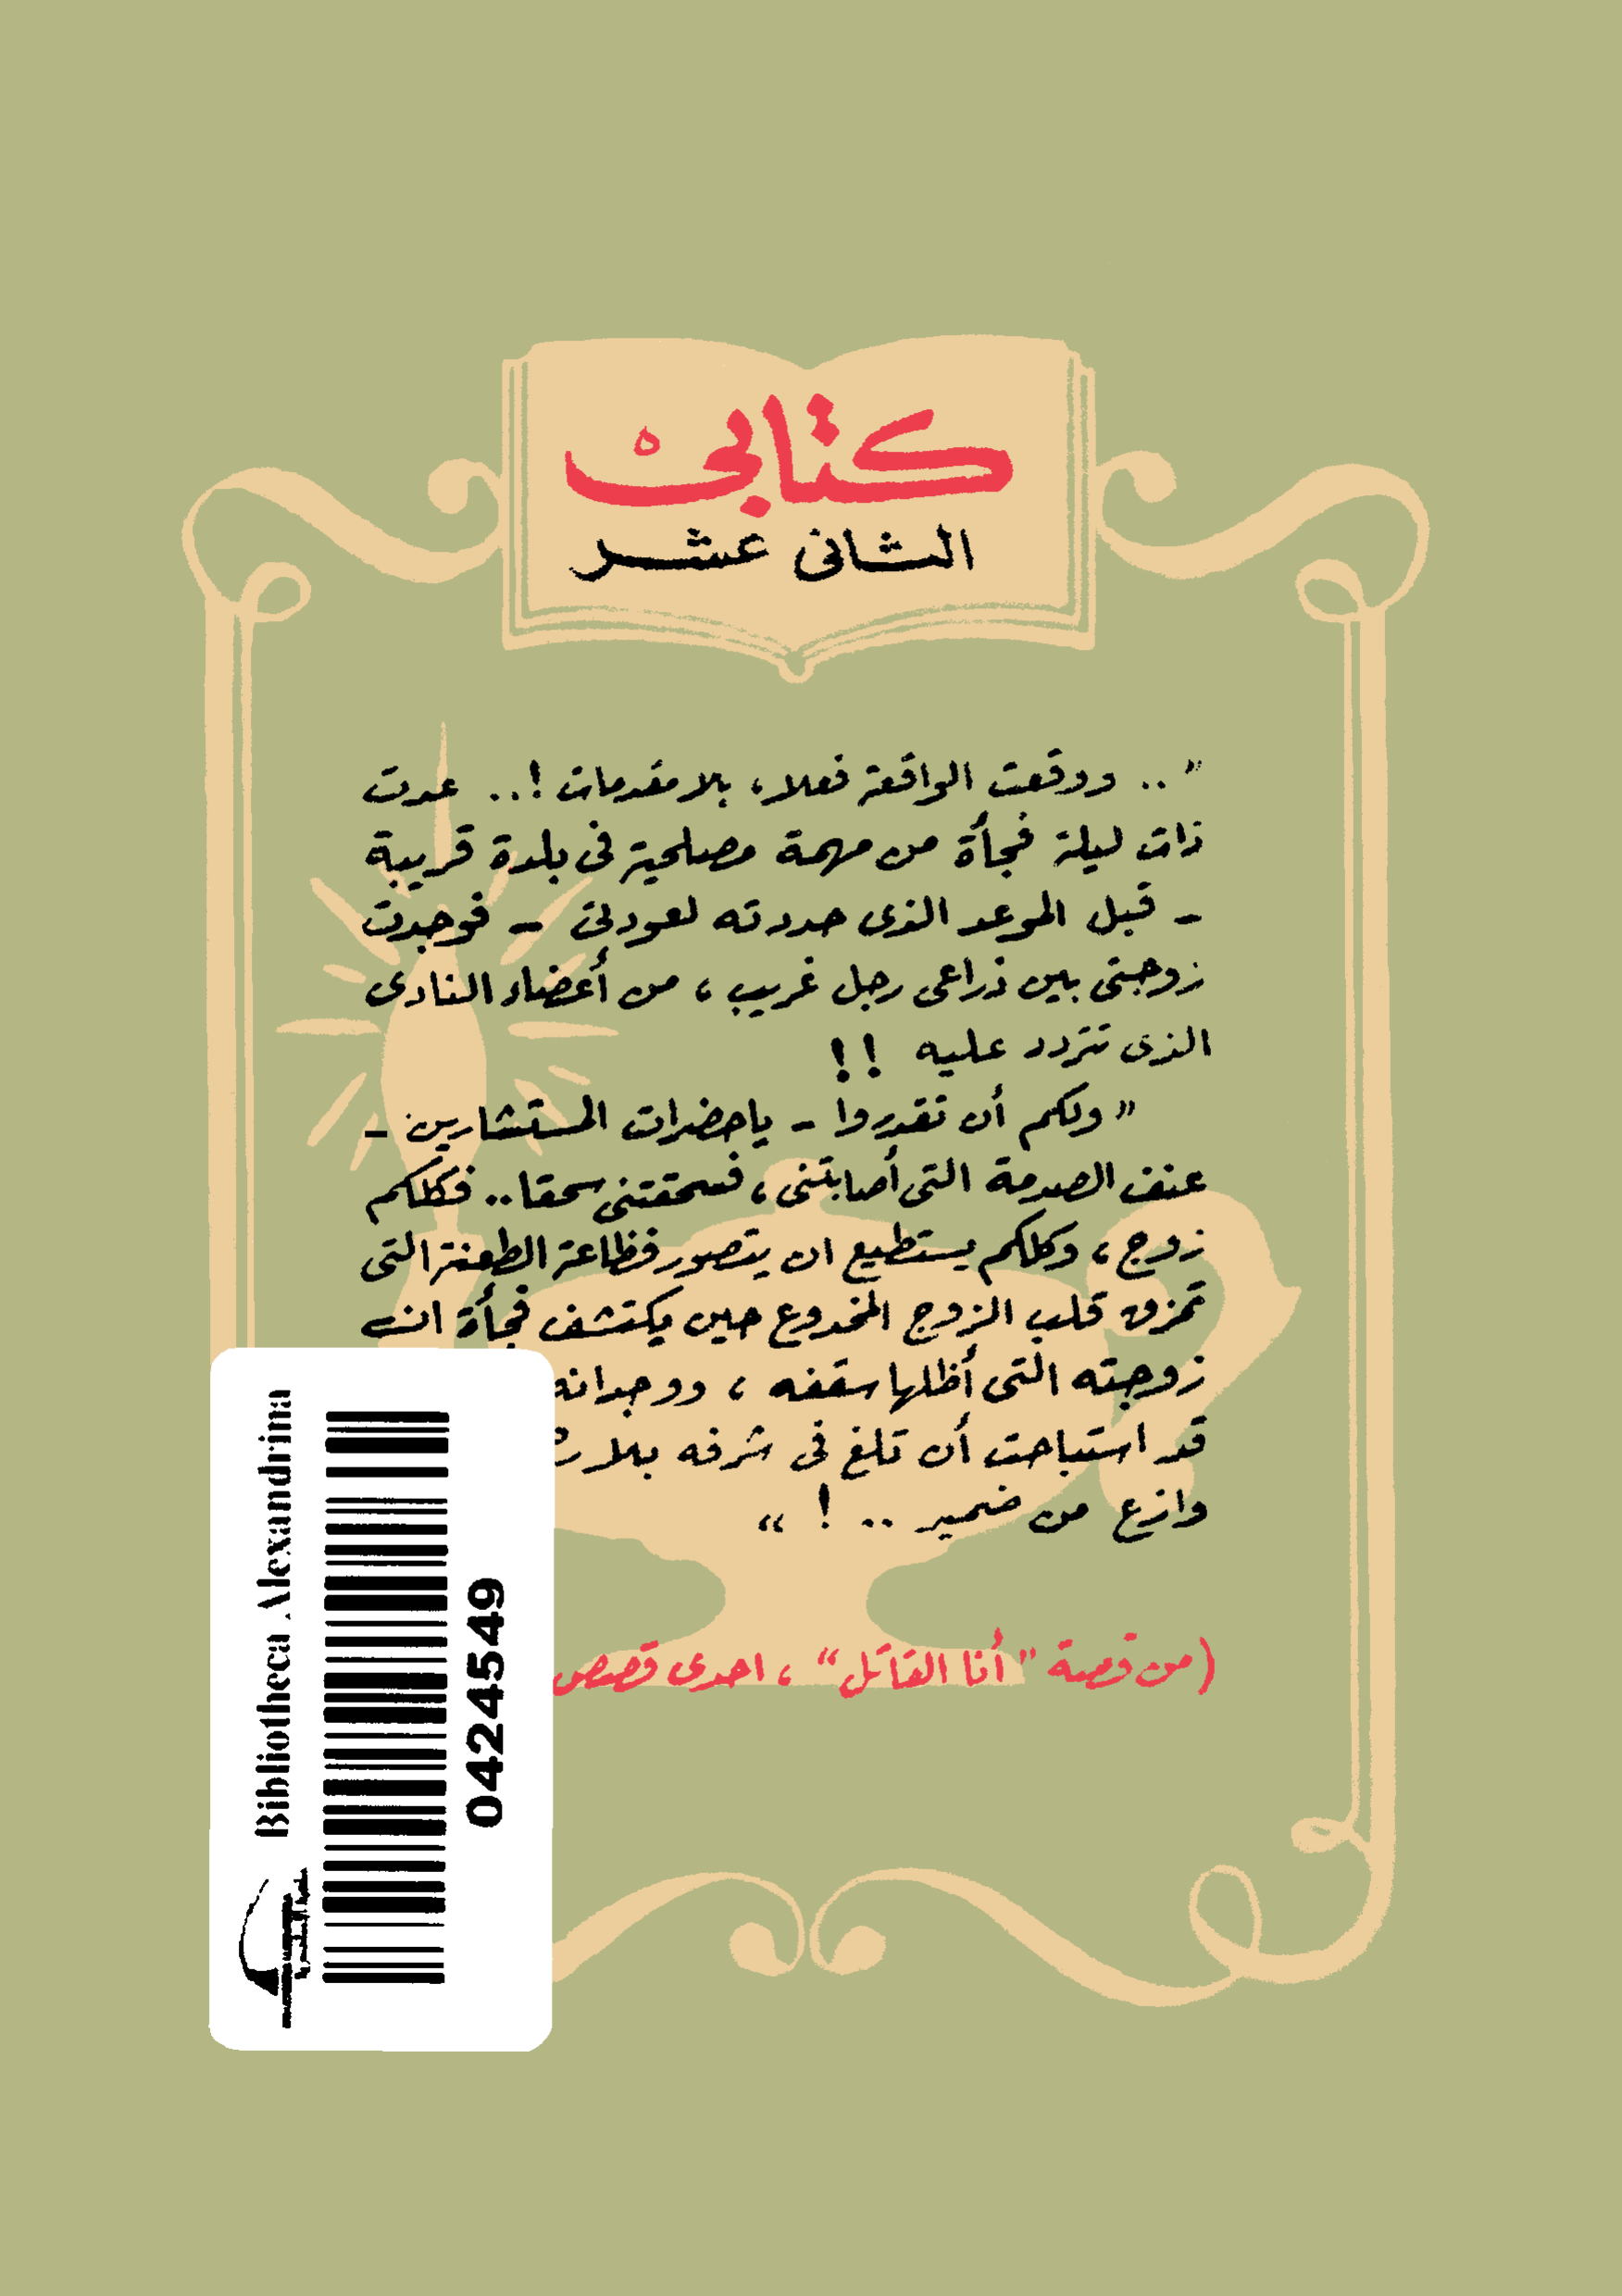 كتابى
الثانى عشر
".. ووقعت الواقعة فعلا، بلا مقدمات !.. عدت
ذات ليلة فجأة من مهمة مصلحية فى بلدة قريبة
- قبل الموعد الذى حددته لعودتى - فوجدت
زوجتى بين ذراعى رجل غريب، من أعضاء النادى
الذى تتردد عليه !!
"ولكم أن تقدروا - ياحضرات المستشارين -
عنف الصدمة التى أصابتنى، فسحقتنى سحقا.. فكلكم
زوج، وكلكم يستطيع ان يتصور فظاعة الطعنة التى
تمزق قلب الزوج المخدوع حين يكتشف فجأة ان
زوجته التى أظلها سقفه، ووجدانه
قد استباحت أن تلغ فى شرفه بلا
وازع من ضمير .. ! "
(من قصة "أنا القاتل"، احدى قصص
Bibliotheca Alexandrina
0424549